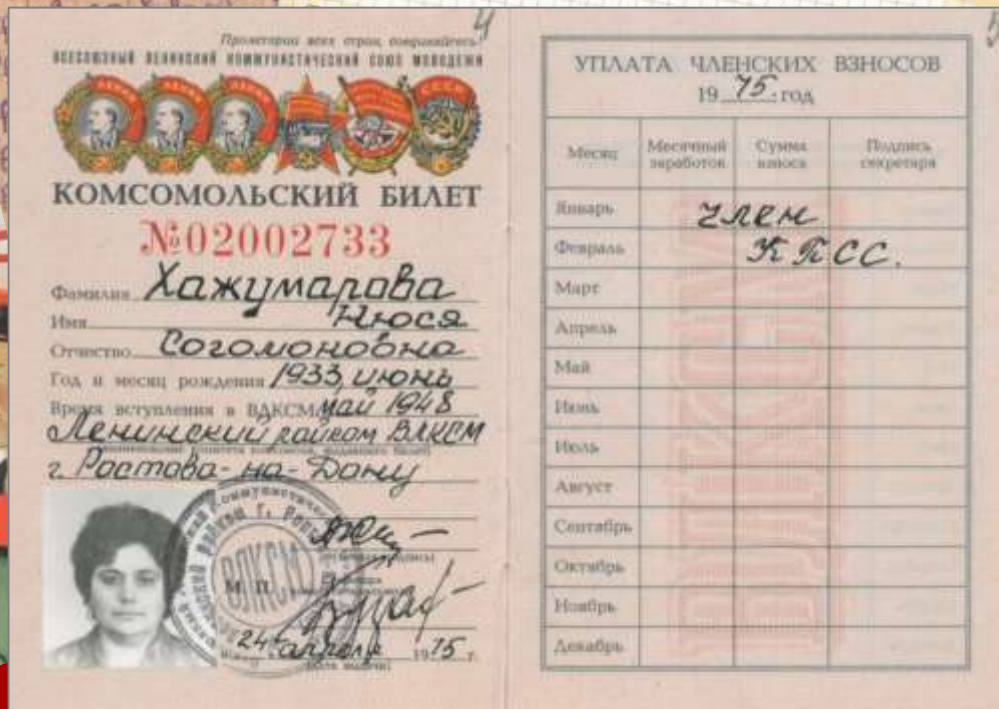 4
Пролетарии всех стран, соединяйтесь!
ВСЕСОЮЗНЫЙ ЛЕНИНСКИЙ КОММУНИСТИЧЕСКИЙ СОЮЗ МОЛОДЕЖИ
ЛЕНИН ЛЕНИН ЛЕНИН СССР
КОМСОМОЛЬСКИЙ БИЛЕТ
№02002733
Фамилия Хажумарова
Имя Нюся
Отчество Согомоновна
Год и месяц рождения 1933, июнь
Время вступления в ВЛКСМ май 1948
Ленинский райком ВЛКСМ
г. Ростова-на-Дону
ВЛКСМ
М. П.
24 апреля 1975 г.
(дата выдачи)
5
УПЛАТА ЧЛЕНСКИХ ВЗНОСОВ
1975 год
Месяц Месячный заработок Сумма взноса Подпись секретаря
Январь член
Февраль КПСС.
Март
Апрель
Май
Июнь
Июль
Август
Сентябрь
Октябрь
Ноябрь
Декабрь
ВЛКСМ